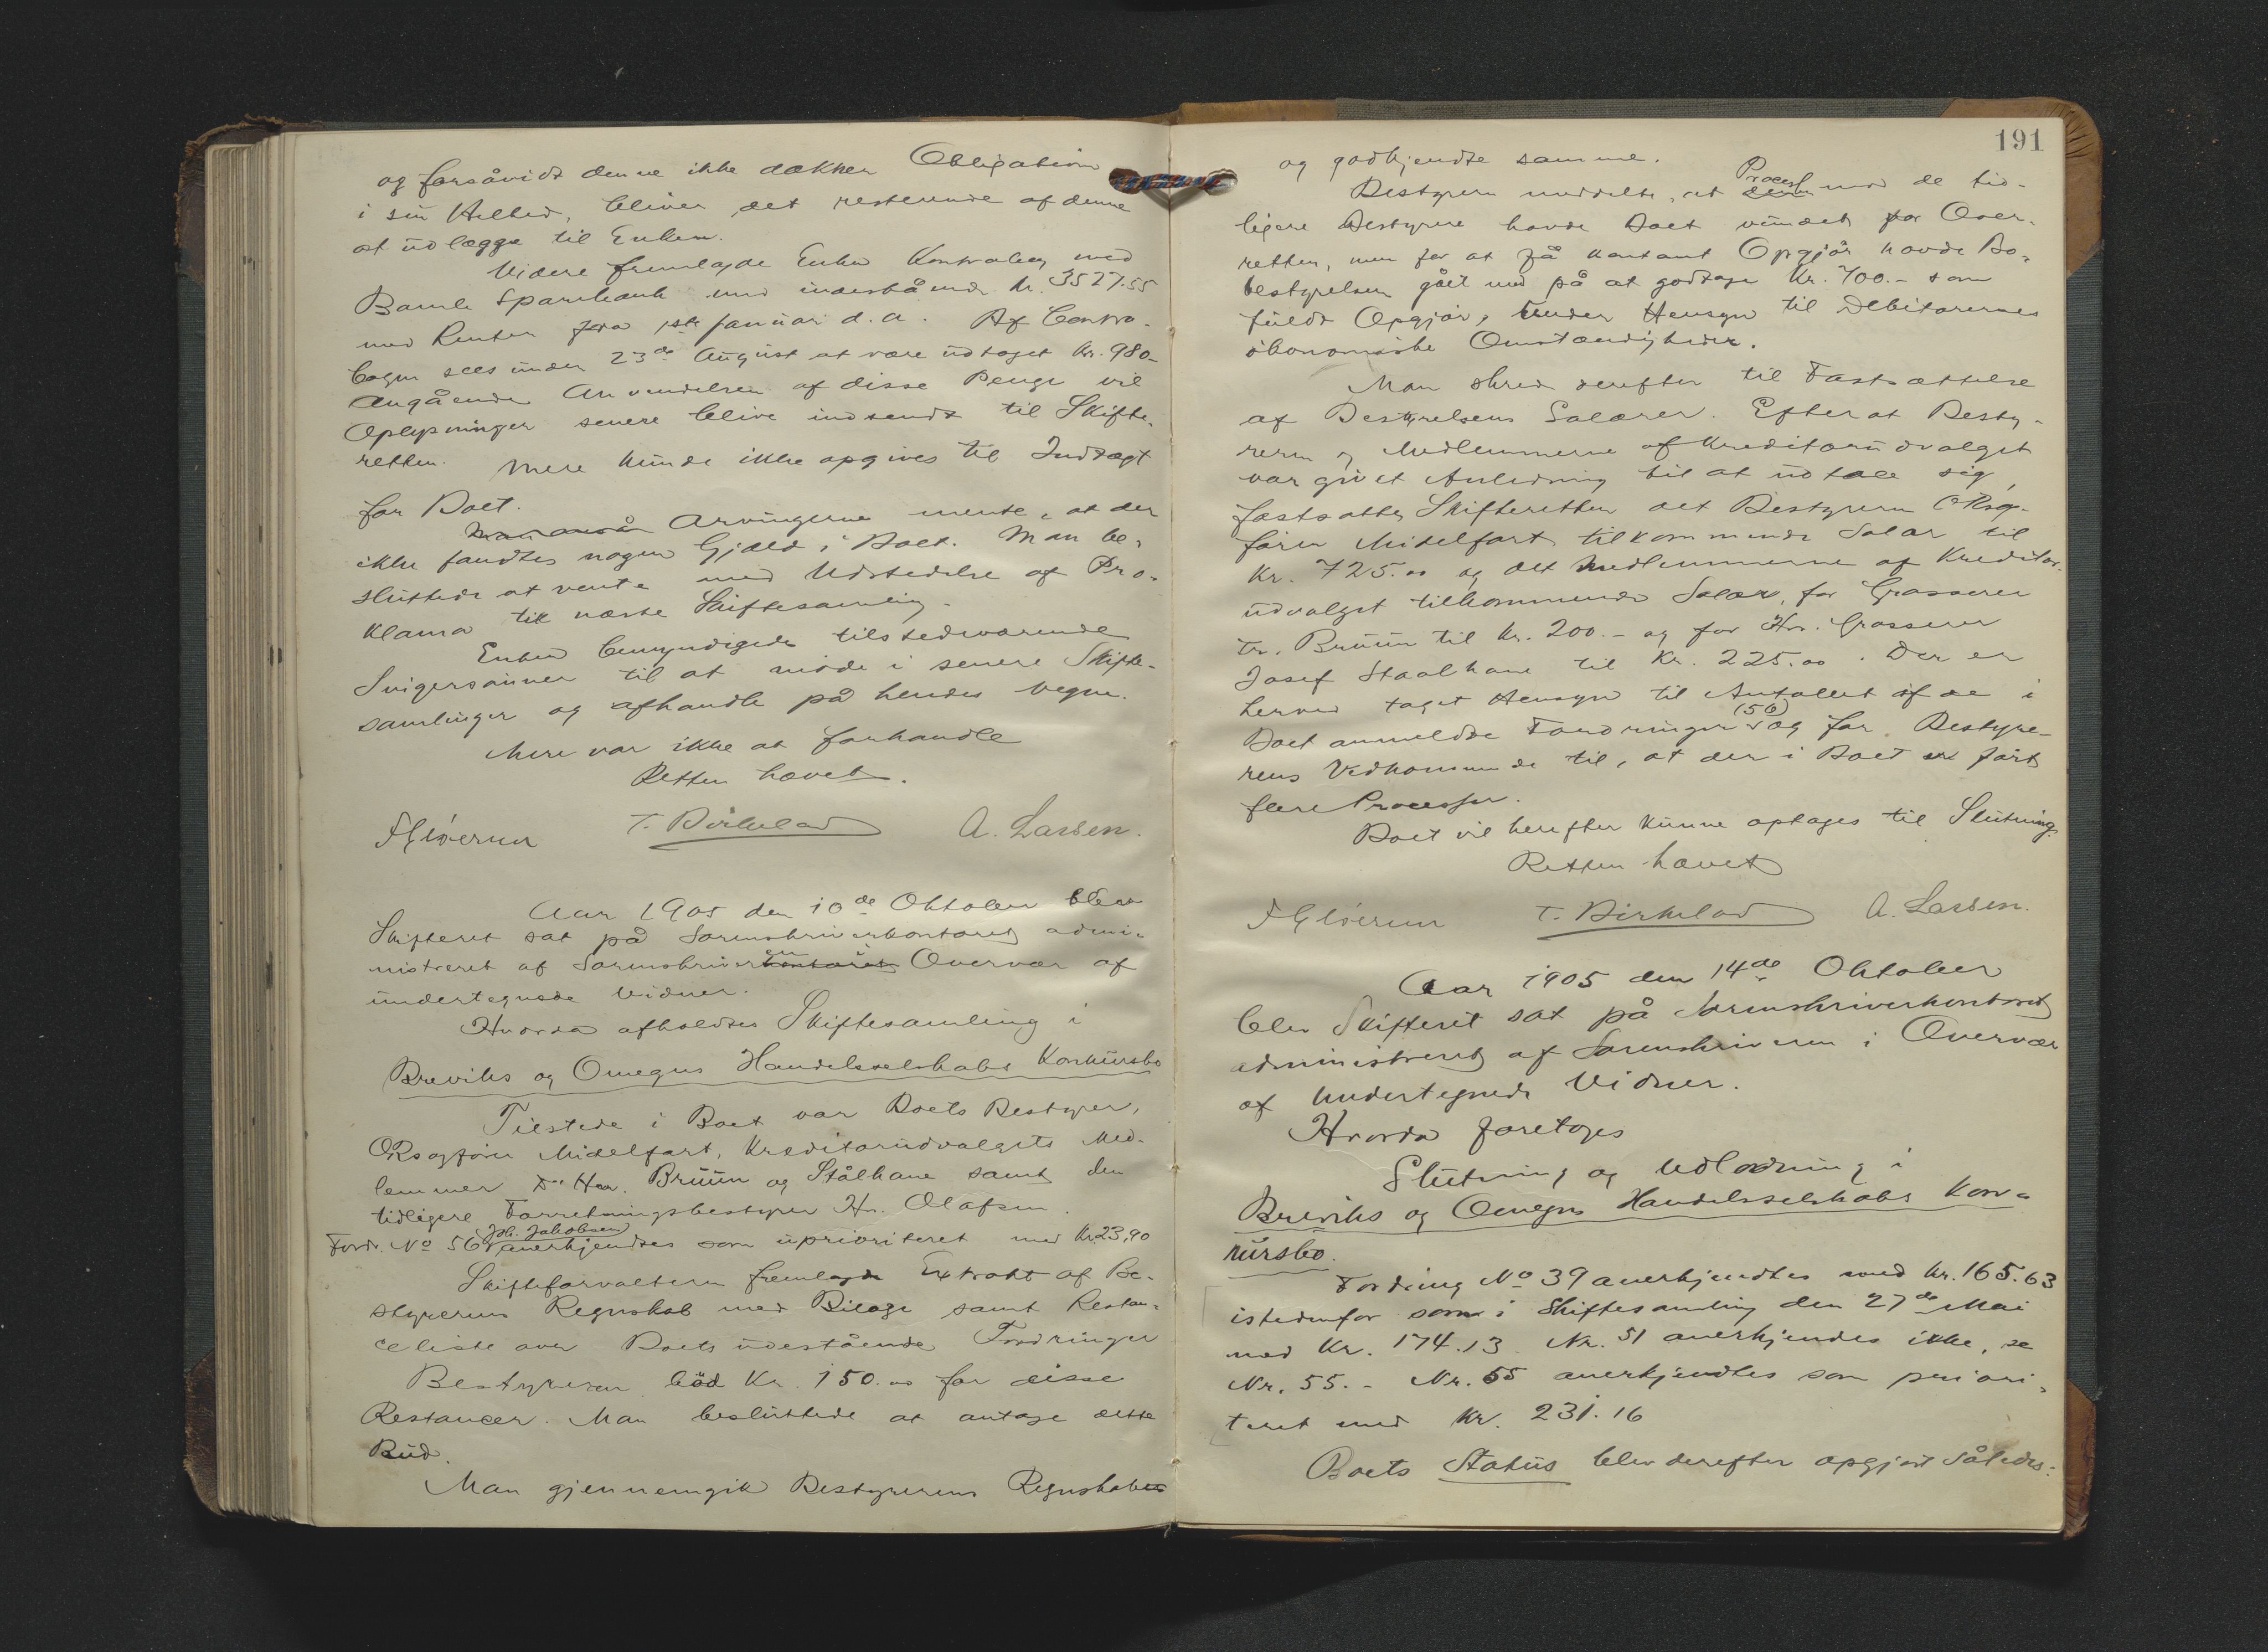 og forsåvidt denne ikke dækker Obligation
i sin Helhed, bliver det resterende af denne
at udlægge til Enken.
Videre fremlagde Enken Kontrabog med
Bamle Sparebank med indestående Kr. 3527.55
med Renter fra 1ste Januar d.a. Af Contra-
bogen sees under 23de August at være udtaget Kr. 980-
Angående Anvendelsen af disse Penge vil
Oplysninger senere blive indsendt til Skifte-
retten. Mere kunde ikke opgives til Indtægt
for Boet.
Arvingerne mente, at der
ikke fandtes nogen Gjæld i Boet. Man be-
sluttede at vente med Udstedelse af Pro-
klama til næste Skiftesamling.
Enken bemyndigede tilstedeværende
Svigersønner til at møde i senere Skifte-
samlinger og afhandle på hendes vegne.
Mere var ikke at forhandle
Retten hævet.
T. Birkelad A. Larsen.
Aar 1905 den 10de Oktober blev
Skifteret sat på Sorenskriverkontoret admi-
nistreret af Sorenskriveren i Overvær af
undertegnede Vidner.
Hvorda afholdtes Skiftesamling i
Breviks og Omegns Handelsselskabs Konkursbo
Tilstede i Boet var Boets Bestyrer,
ORsagfører Midelfart, Kreditorudvalgets Med-
lemmer Dr Hrr. Bruun og Stålhane samt den
tidligere Forretningsbestyrer Hr. Olafsen.
Joh. Jakobsen
Fordr. No 56 anerkjendtes som uprioriteret med Kr. 23,90
Skifteforvalteren fremlagde Extrakt af Be-
styrerens Regnskab med Bilage samt Restan-
celiste over Boets udestående Fordringer
Bestyreren bød Kr. 150.00 for disse
Restancer. Man besluttede at antage dette
Bud.
Man gjennemgik Bestyrerens Regnskab
191
og godkjendte samme.
Procesf
Bestyreren meddelte, at mod de tid-
ligere Bestyrere havde Boet vundet for Over-
retten, men for at få kontant Opgjør havde Bo-
bestyrelsen gået med på at godtage Kr. 700.- som
fuldt Opgjør, under Hensyn til Debitorernes
økonomiske Omstændigheder.
Man skred derefter til Fastsættelse
af Bestyrelsens Salærer. Efterat Besty-
reren og Medlemmerne af Kreditorudvalget
var givet Anledning til at udtale sig,
fastsatte Skifteretten det Bestyreren ORsag-
fører Midelfart tilkommende Salær til
Kr. 725.00 og det Medlemmerne af Kreditor-
udvalget tilkommende Salær, for Grosserer
Tr. Bruun til Kr. 200.- og for Hr. Grosserer
Josef Staalhane til Kr. 225.00. Der er
herved taget Hensyn til Antallet af de i
(56)
Boet anmeldte Fordringer og for Bestyre-
rens Vedkommende til, at der i Boet er ført
flere Processer.
Boet vil herefter kunne optages til Slutning.
Retten hævet
T. Birkelad A. Larsen.
Aar 1905 den 14de Oktober
blev Skifteret sat på Sorenskriverkontoret
administreret af Sorenskriveren i Overvær
af undertegnede Vidner.
Hvorda foretoges
Slutning og Udlodning i
Breviks og Omegns Handelsselskabs Kon-
kursbo.
Fordring No 39 anerkjendtes med Kr. 165.63
istedenfor som i Skiftesamling den 27de Mai
med Kr. 174.13. Nr. 51 anerkjendes ikke, se
Nr. 55. - Nr. 55 anerkjendtes som priori-
teret med Kr. 231.16
Boets Status blev derefter opgjort således: